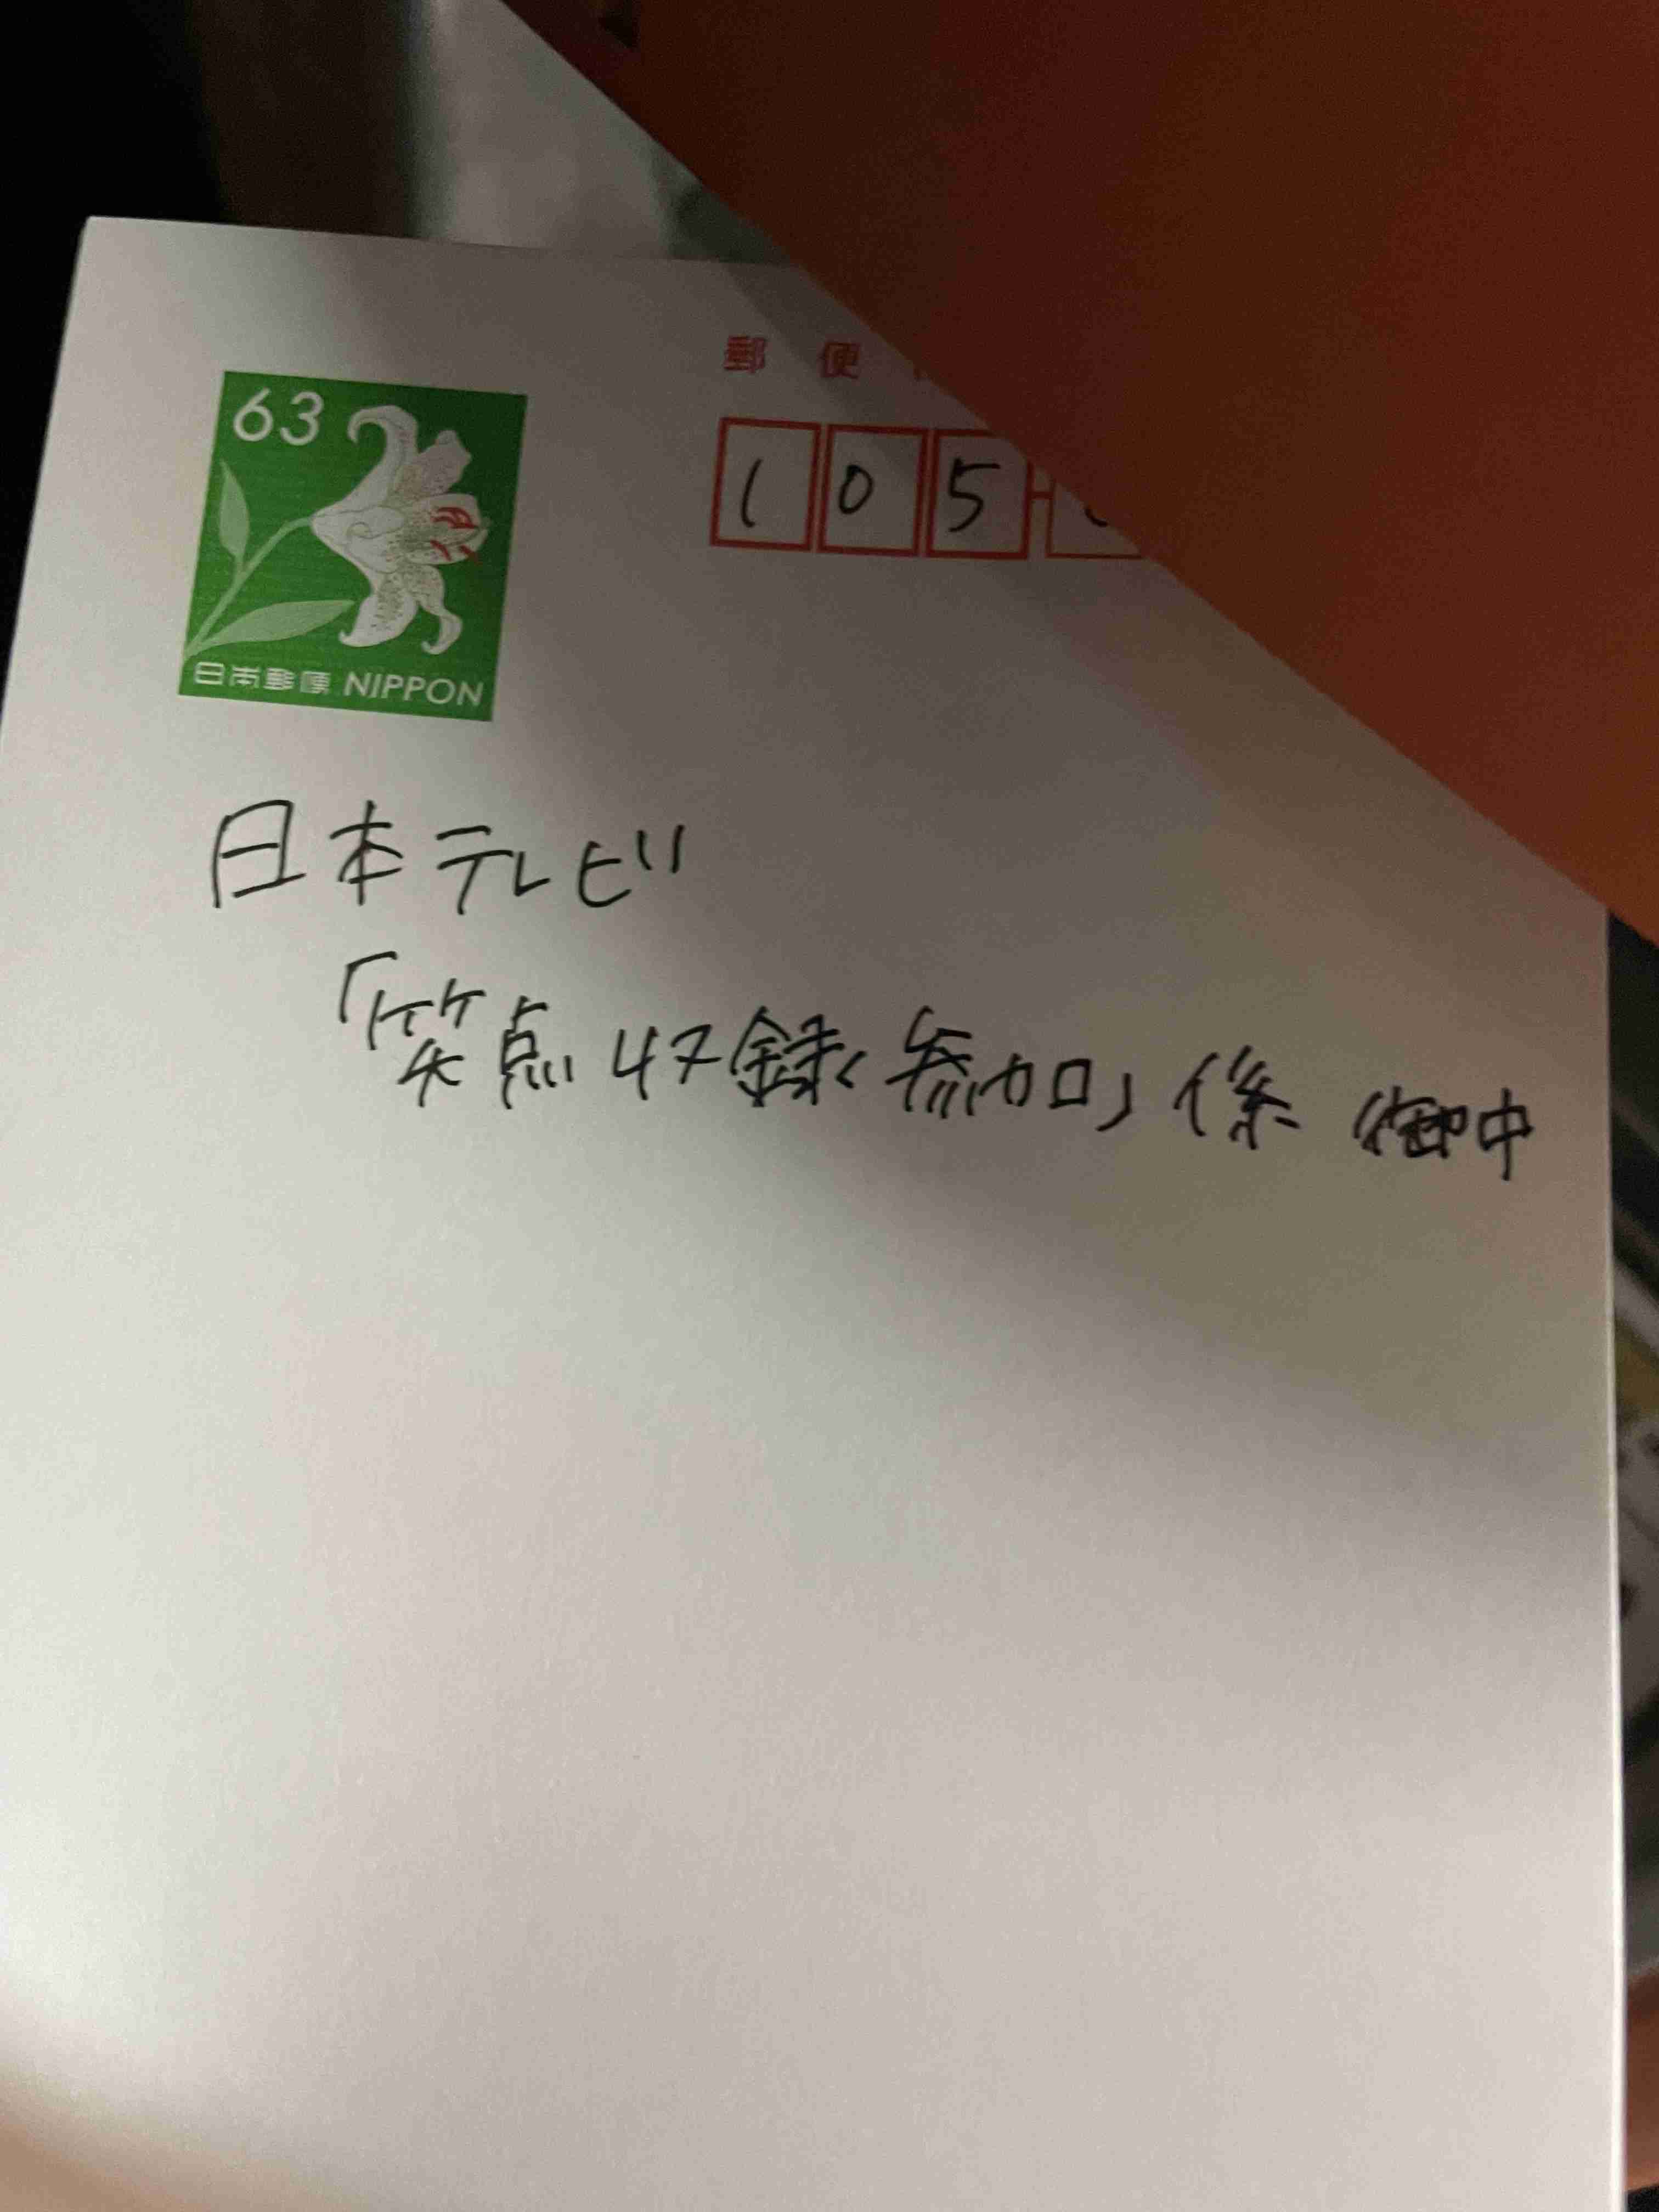 郵便
63
105
日本郵便 NIPPON
日本テレビ
「笑点収録参加」係 御中